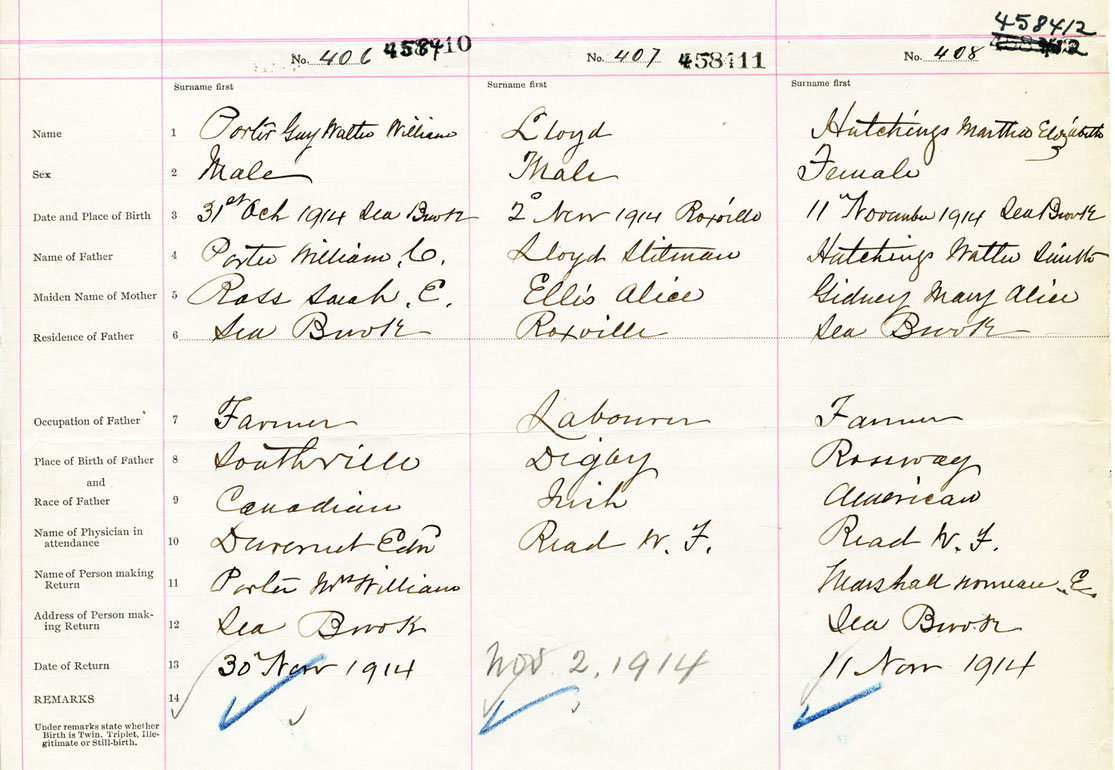 458412
No. 406 458410 No. 407 458411 No. 408
Surname first Surname first Surname first
Name 1 Porter Guy Walter William Lloyd Hutchings Martha Elizabeth
Sex 2 Male Male Female
Date and Place of Birth 3 31st Oct 1914 Sea Brook 2d Nov 1914 Roxville 11th November 1914 Sea Brook
Name of Father 4 Porter William C. Lloyd Hutchings Walter
Maiden Name of Mother 5 Ross Sarah E. Ellis Alice Gidney Mary Alice
Residence of Father 6 Sea Brook Roxville Sea Brook
Occupation of Father 7 Farmer Labourer Farmer
Place of Birth of Father 8 Southville Digby Rossway
and
Race of Father 9 Canadian Irish American
Name of Physician in
attendance 10 Duvernet Edw Read W. F. Read W. F.
Name of Person making
Return 11 Porter Mrs William Marshall Norman E.
Address of Person mak-
ing Return 12 Sea Brook Sea Brook
Date of Return 13 30 Nov 1914 Nov 2, 1914 11 Nov 1914
REMARKS 14
Under remarks state whether
Birth is Twin, Triplet, Ille-
gitimate or Still-birth.